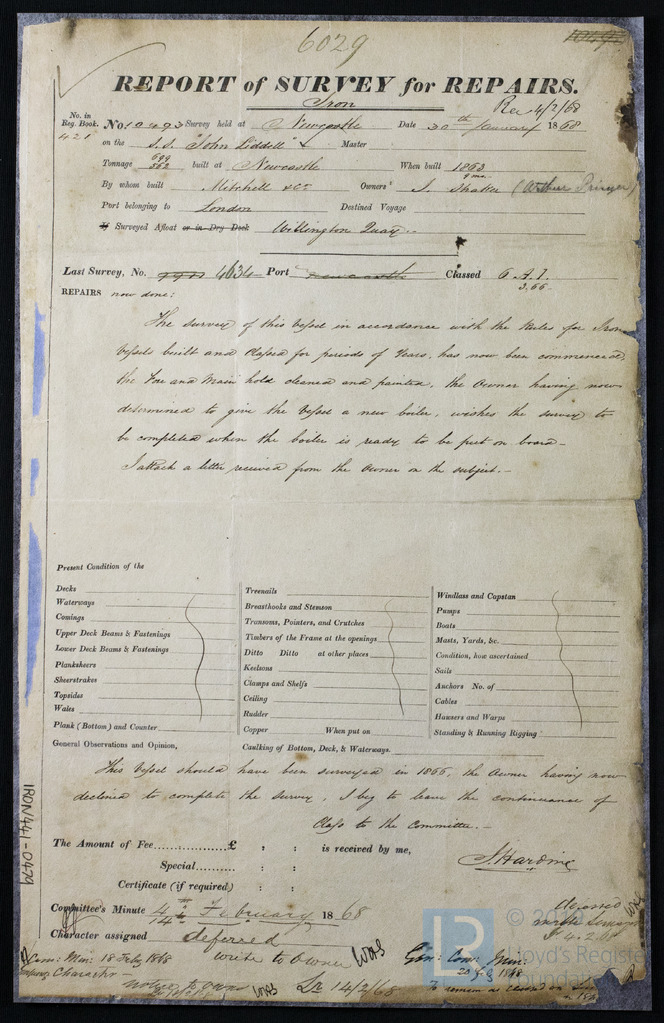 6029
REPORT of SURVEY for REPAIRS.
Iron
Rec 4/2/68
No. in Reg. Book. 421
No. 10493 Survey held at Newcastle Date 30th January 1868
on the S.S. "John Liddell" Master
Tonnage 699 562 built at Newcastle When built 1863 9mo.
By whom built Mitchell & Co Owners' J. (Arthur
Port belonging to London Destined Voyage
If Surveyed Afloat or in Dry Dock Willington Quay
Last Survey, No. 4634 Port Newcastle Classed 6 A.1. 3.66
REPAIRS now done:
The survey of this vessel in accordance with the Rules for Iron
Vessels built and classed for periods of years, has now been commenced,
the Fore and Main hold cleaned and painted, the owner having now
determined to give the vessel a new boiler, wishes the survey to
be completed when the boiler is ready to be put on board—
I attach a letter received from the owner on the subject.—
Present Condition of the
Decks
Waterways
Comings
Upper Deck Beams & Fastenings
Lower Deck Beams & Fastenings
Planksheers
Sheerstrakes
Topsides
Wales
Plank (Bottom) and Counter
Treenails
Breasthooks and Stemson
Transoms, Pointers, and Crutches
Timbers of the Frame at the openings
Ditto Ditto at other places
Keelsons
Clamps and Shelfs
Ceiling
Rudder
Copper When put on
Windlass and Capstan
Pumps
Boats
Masts, Yards, &c.
Condition, how ascertained
Sails
Anchors No. of
Cables
Hawsers and Warps
Standing & Running Rigging
General Observations and Opinion, Caulking of Bottom, Deck, & Waterways.
This vessel should have been surveyed in 1866, the owner having now
declined to complete the survey, I beg to leave the continuance of
Class to the Committee.—
The Amount of Fee £ : : is received by me,
Special : :
Certificate (if required) : :
Committee's Minute 4th February 1868
14th
Character assigned deferred
write to Owner
Com: Min: 18 Feby 1868
Character—
Lr 14/2/68
Gen: Com: Min:
20 1868
To remain as classed on
IRON441-0479
LR © 20
Lloyd's Register
Foundation